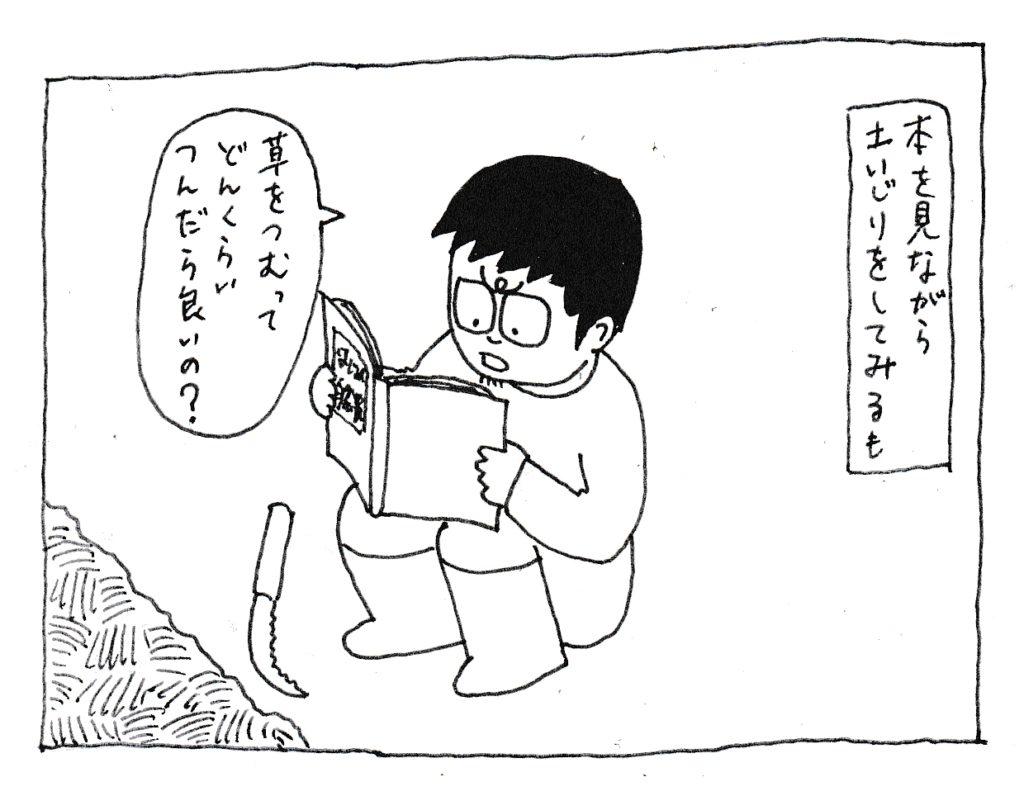 本を見ながら
土いじりをしてみるも
草をつむって
どんくらい
つんだら良いの?